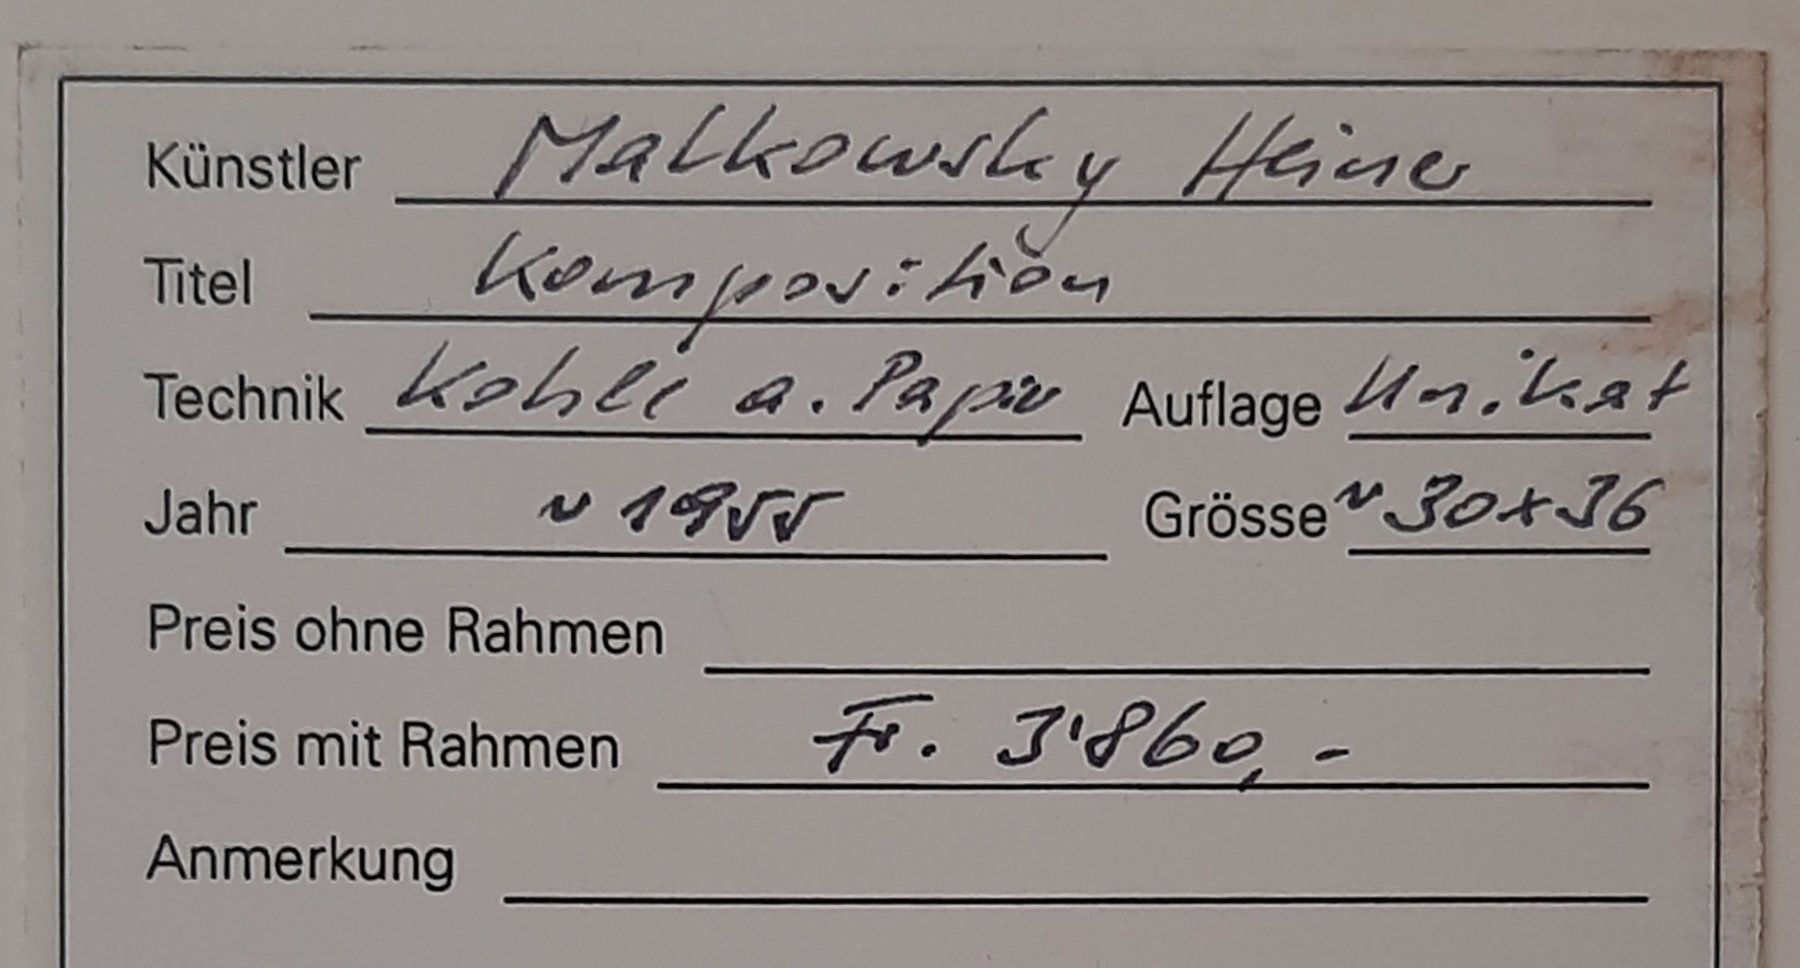 Künstler Malkowsky Heiner
Titel Komposition
Technik Kohle a. Papier Auflage Unikat
Jahr ~ 1955 Grösse ~ 30x36
Preis ohne Rahmen
Preis mit Rahmen Fr. 3'860,-
Anmerkung